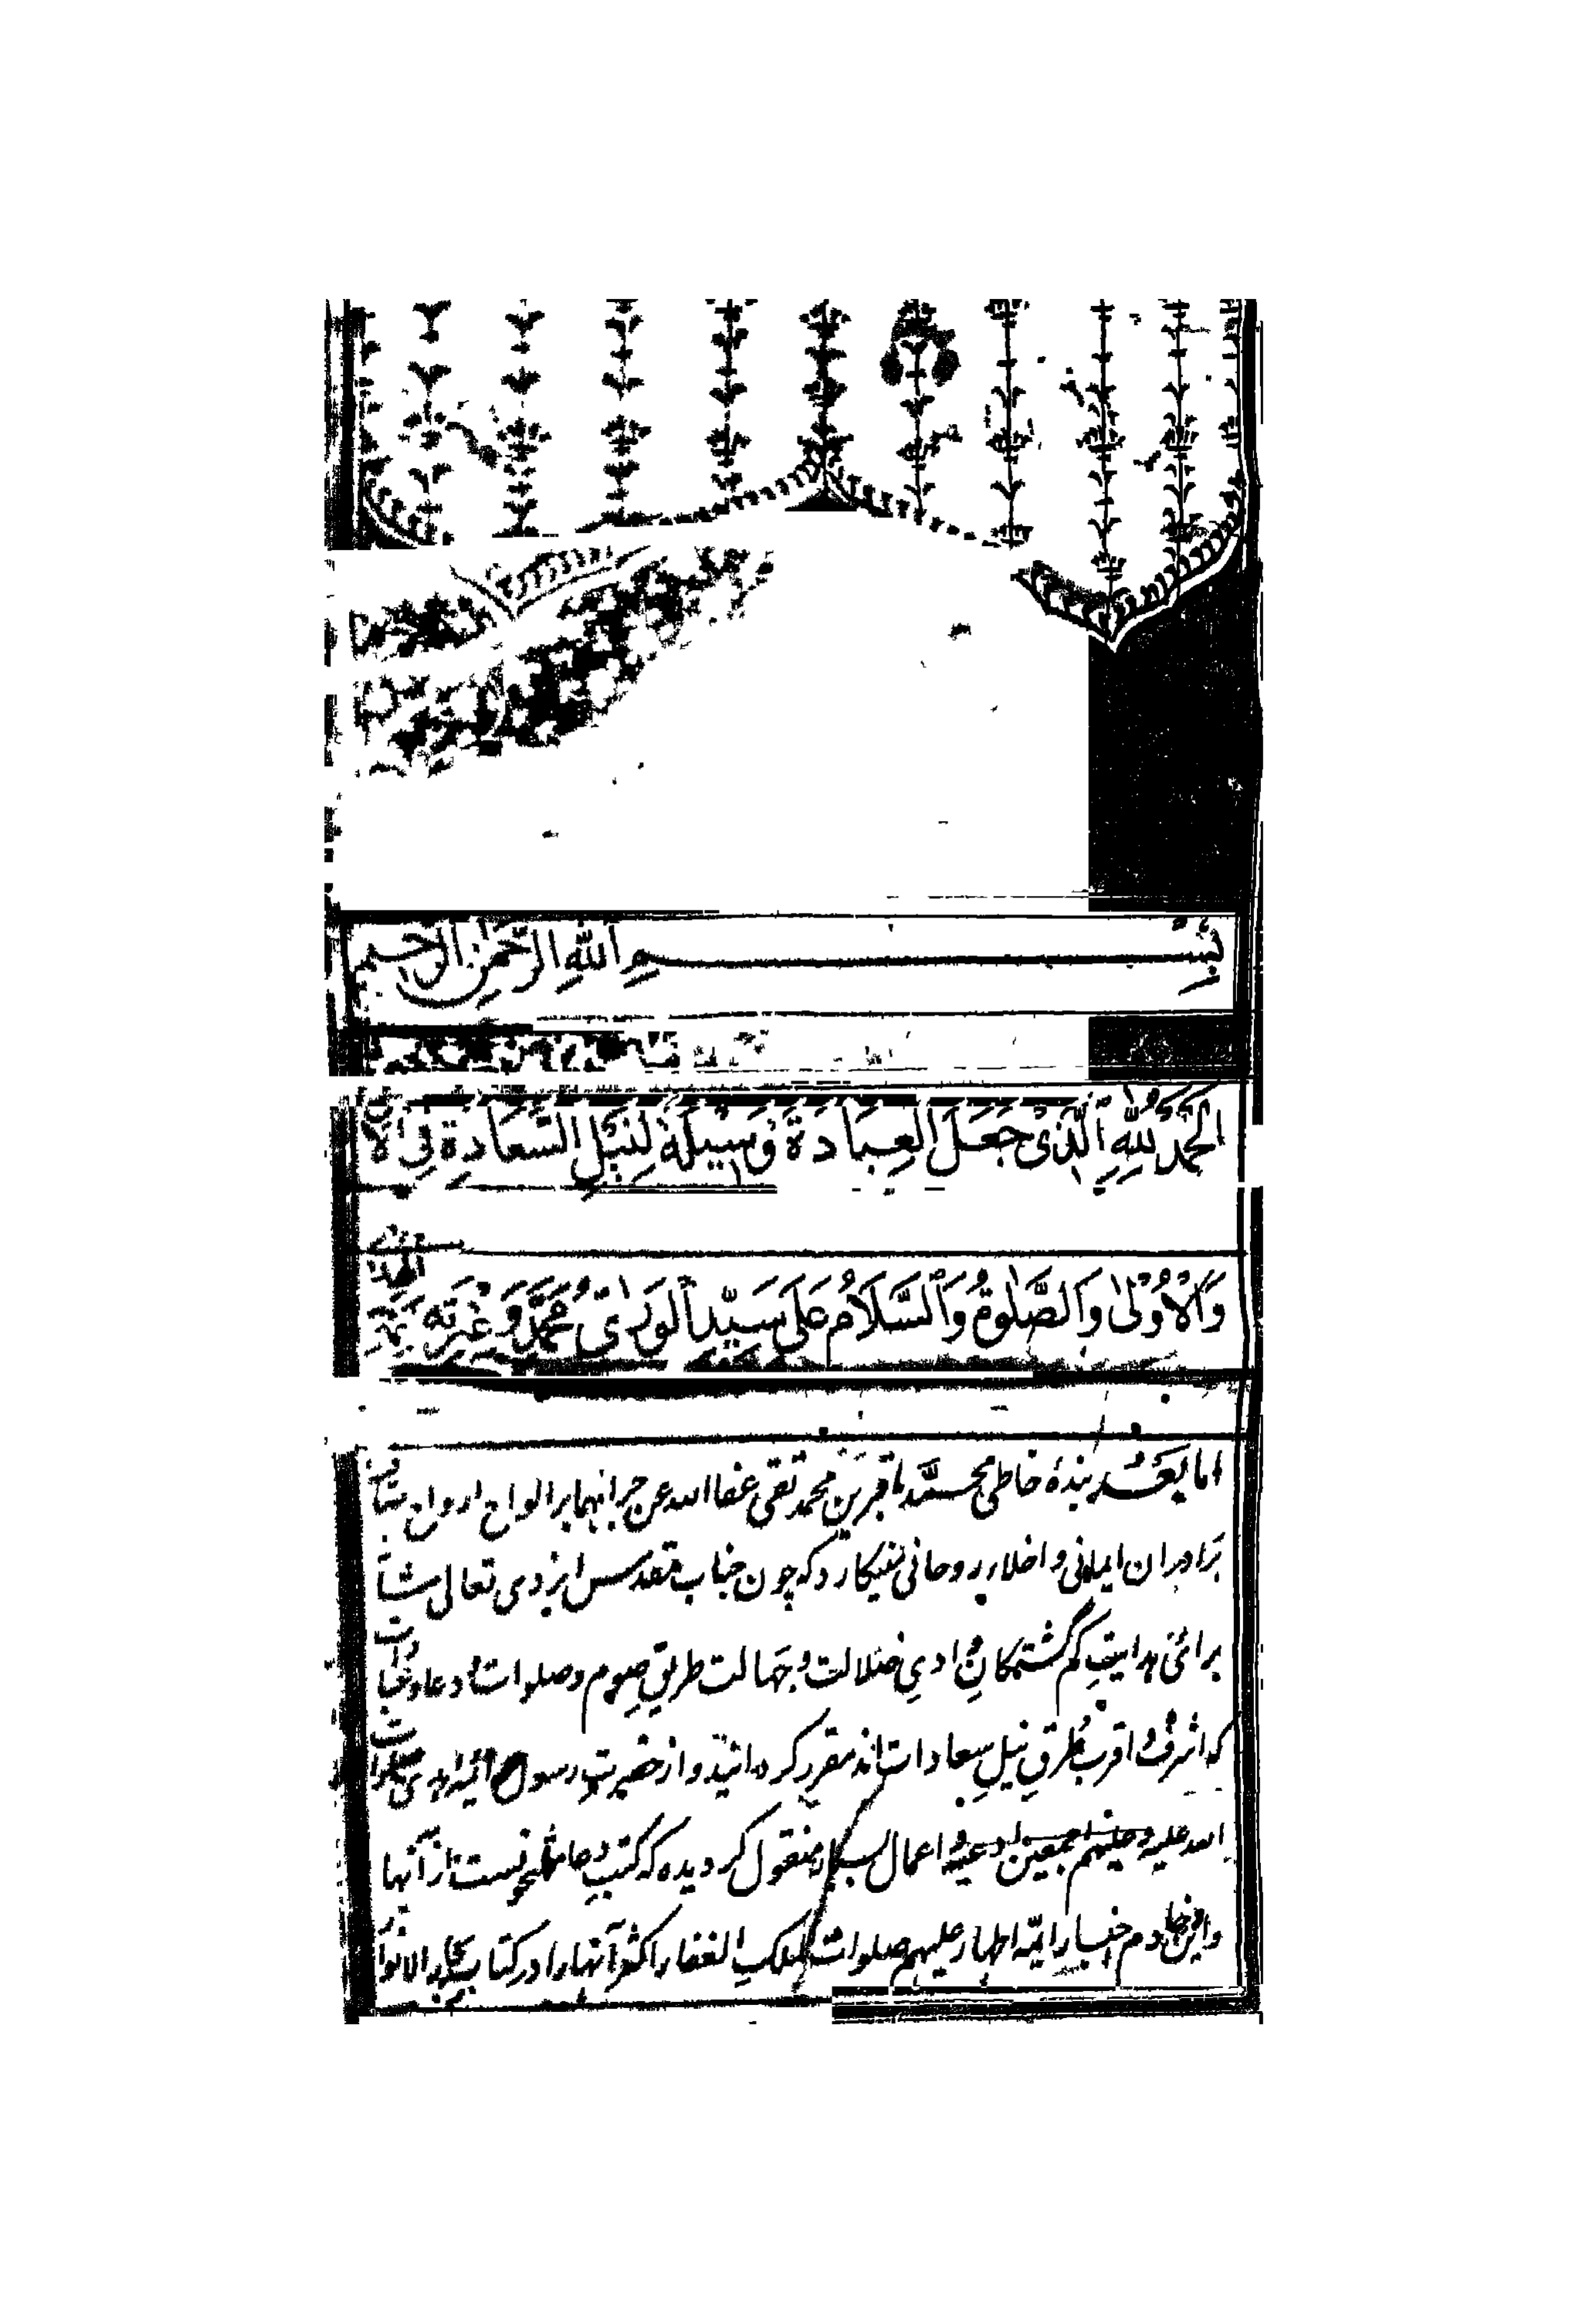 بِسْمِ اللّٰهِ الرَّحْمٰنِ الرَّحِیم
اَلْحَمْدُ لِلّٰهِ الَّذِیْ جَعَلَ الْعِبَادَةَ وَسِیْلَةً لِنَیْلِ السَّعَادَةِ فِی الْاٰخِرَةِ
وَالْاُوْلٰی وَالصَّلٰوةُ وَالسَّلَامُ عَلٰی سَیِّدِ الْوَرٰی مُحَمَّدٍ وَعِتْرَتِهٖ ائمة الهدی
اما بعد بندهٔ خاطی محمد باقر بن محمد تقی عفا الله عن جرائمهما بر الواح ارواح
برادران ایمانی و اخلاء روحانی مینگارد که چون جناب مقدس ایزدی تعالی شانه
برائی هدایتِ گم گشتگانِ وادیِ ضلالت و جهالت طریقِ صوم و صلوات و دعا و مناجات
که اشرف و اقرب طُرقِ نیلِ سعادات اند مقرر گردانید و از حضرتِ رسول و ائمه هدی صلوات
الله علیه و علیهم اجمعین ادعیه و اعمال بسیار منقول گردیده که کتبِ دعا مشحونست از آنها
و این خادم اخبار ائمّه اطهار علیهم صلوات الملکِ الغفار اکثر آنها را در کتاب بحار الانوار